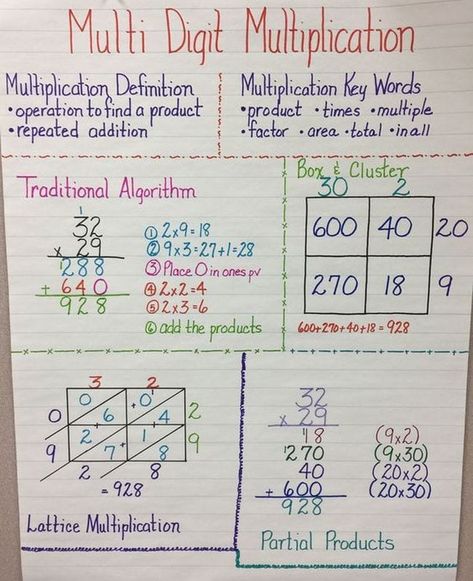 Multi Digit Multiplication
Multiplication Definition
• operation to find a product
• repeated addition
Multiplication Key Words
• product • times • multiple
• factor • area • total • in all
Traditional Algorithm
1
32
x 29
1288
+ 640
928
① 2x9=18
② 9x3=27+1=28
③ Place 0 in ones pv
④ 2x2=4
⑤ 2x3=6
⑥ add the products
Box & Cluster
30 2
600 40 20
270 18 9
600+270+40+18=928
3 2
0 0
0 6 4 2
2 1
9 7 8 9
2 8
=928
Lattice Multiplication
32
x 29
18 (9x2)
270 (9x30)
40 (20x2)
+ 600 (20x30)
928
Partial Products